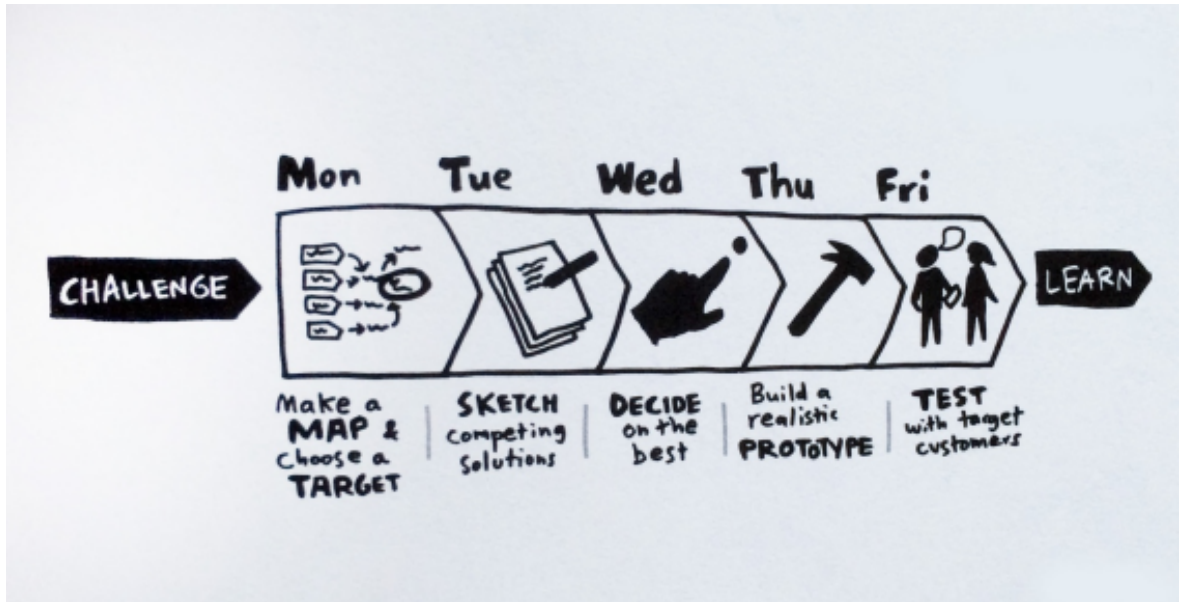 Mon
Tue
Wed
Thu
Fri
CHALLENGE
LEARN
Make a
MAP &
choose a
TARGET
SKETCH
competing
solutions
DECIDE
on the
best
Build a
realistic
PROTOTYPE
TEST
with target
customers